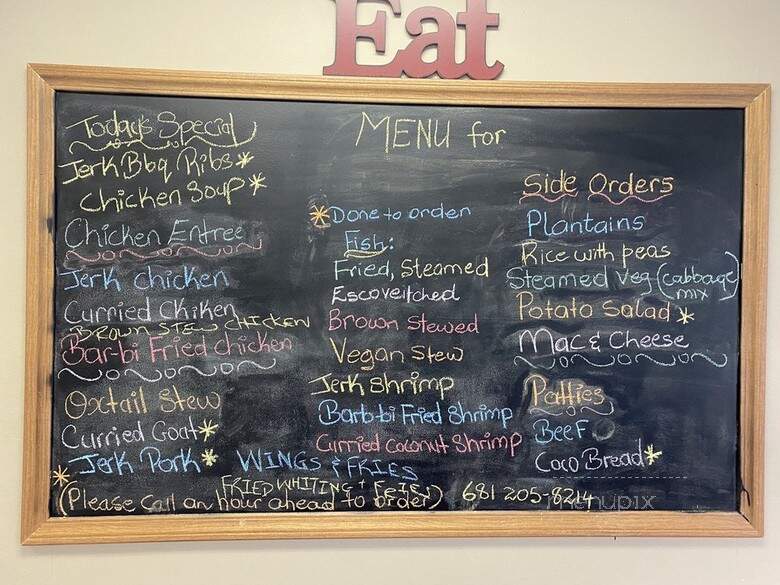 Eat
Today's Special
Jerk Bbq Ribs*
Chicken Soup*
Chicken Entree
Jerk chicken
Curried Chiken
BROWN STEW CHICKEN
Bar-bi Fried chicken
Oxtail Stew
Curried Goat*
Jerk Pork*
WINGS & FRIES
MENU for
*Done to orden
Fish:
Fried, Steamed
Escoveitched
Brown Stewed
Vegan Stew
Jerk Shrimp
Barb-bi Fried Shrimp
Curried Coconut Shrimp
Side Orders
Plantains
Rice with peas
Steamed Veg (Cabbage
mix)
Potato Salad *
Mac & Cheese
Patties
Beef
Coco Bread*
FRIED WHITING +
*(Please Call an hour ahead to order) 681 205-8214
menupix